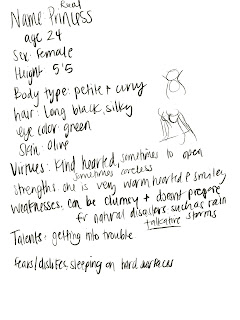 Name: Real Princess
age 24
Sex: Female
Height: 5'5
Body type: petite + curvy
hair: Long black, silky
eye color: green
Skin: olive
Virtues: Kind hearted, sometimes to open
sometimes careless
strengths: she is very warm hearted & smiley
weaknesses: can be clumsy + doesnt prepare
for natural disasters such as rain
talkative storms
Talents: getting into trouble
fears/dislikes: sleeping on hard surfaces